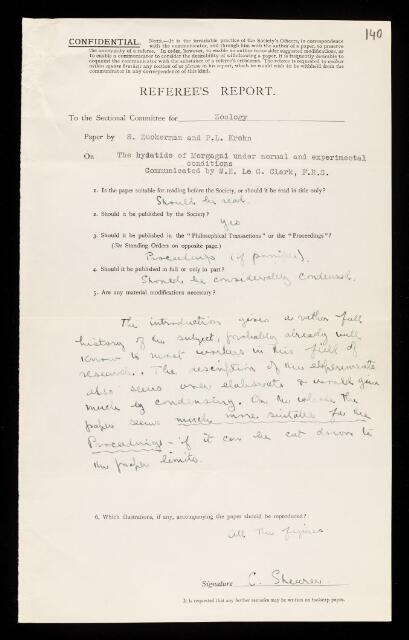 140
CONFIDENTIAL. NOTE.—It is the invariable practice of the Society's Officers, in correspondence
with the communicator, and through him with the author of a paper, to preserve
the anonymity of a referee. In order, however, to enable authors to consider suggested modifications, or
to enable a communicator to consider the desirability of withdrawing a paper, it is frequently desirable to
acquaint the communicator with the substance of a referee's criticisms. The referee is requested to
against any section of
communicator in any correspondence of this kind.
REFEREE'S REPORT.
To the Sectional Committee for Zoology
Paper by S. Zuckerman and P.L. Krohn
On The hydatids of Morgagni under normal and experimental
conditions
Communicated by W.E. Le G. Clark, F.R.S.
1. Is the paper suitable for reading before the Society, or should it be read in title only?
Should be read.
2. Should it be published by the Society?
Yes
3. Should it be published in the "Philosophical Transactions" or the "Proceedings"?
(See Standing Orders on opposite page.)
Proceedings (if possible).
4. Should it be published in full or only in part?
Should be considerably condensed.
5. Are any material modifications necessary?
The introduction gives a rather full
history of the subject, probably already well
know to most workers in this field of
research. The description of the experiments
also seems over elaborate & would gain
much by condensing. On the whole the
paper seems much more suitable for the
Proceedings - if it can be cut down to
the proper limits.
6. Which illustrations, if any, accompanying the paper should be reproduced?
All the figures
Signature C. Shearer
It is requested that any further remarks may be written on foolscap paper.